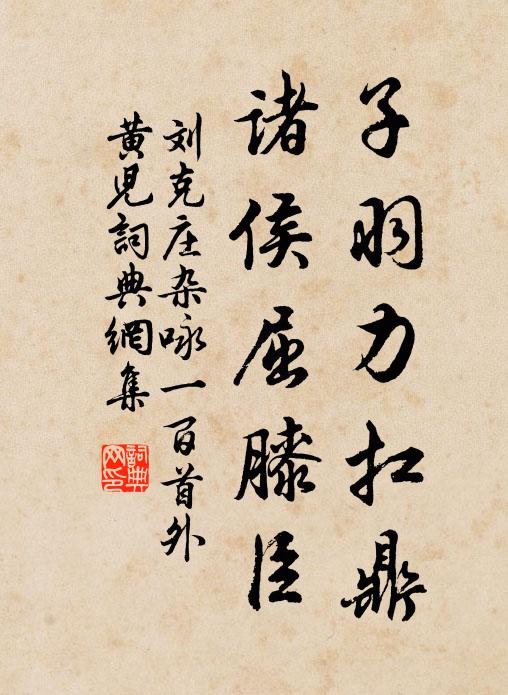 子羽力扛鼎
诸侯屈膝臣
刘克庄杂咏一百首外
黄儿词典网集
词典网印